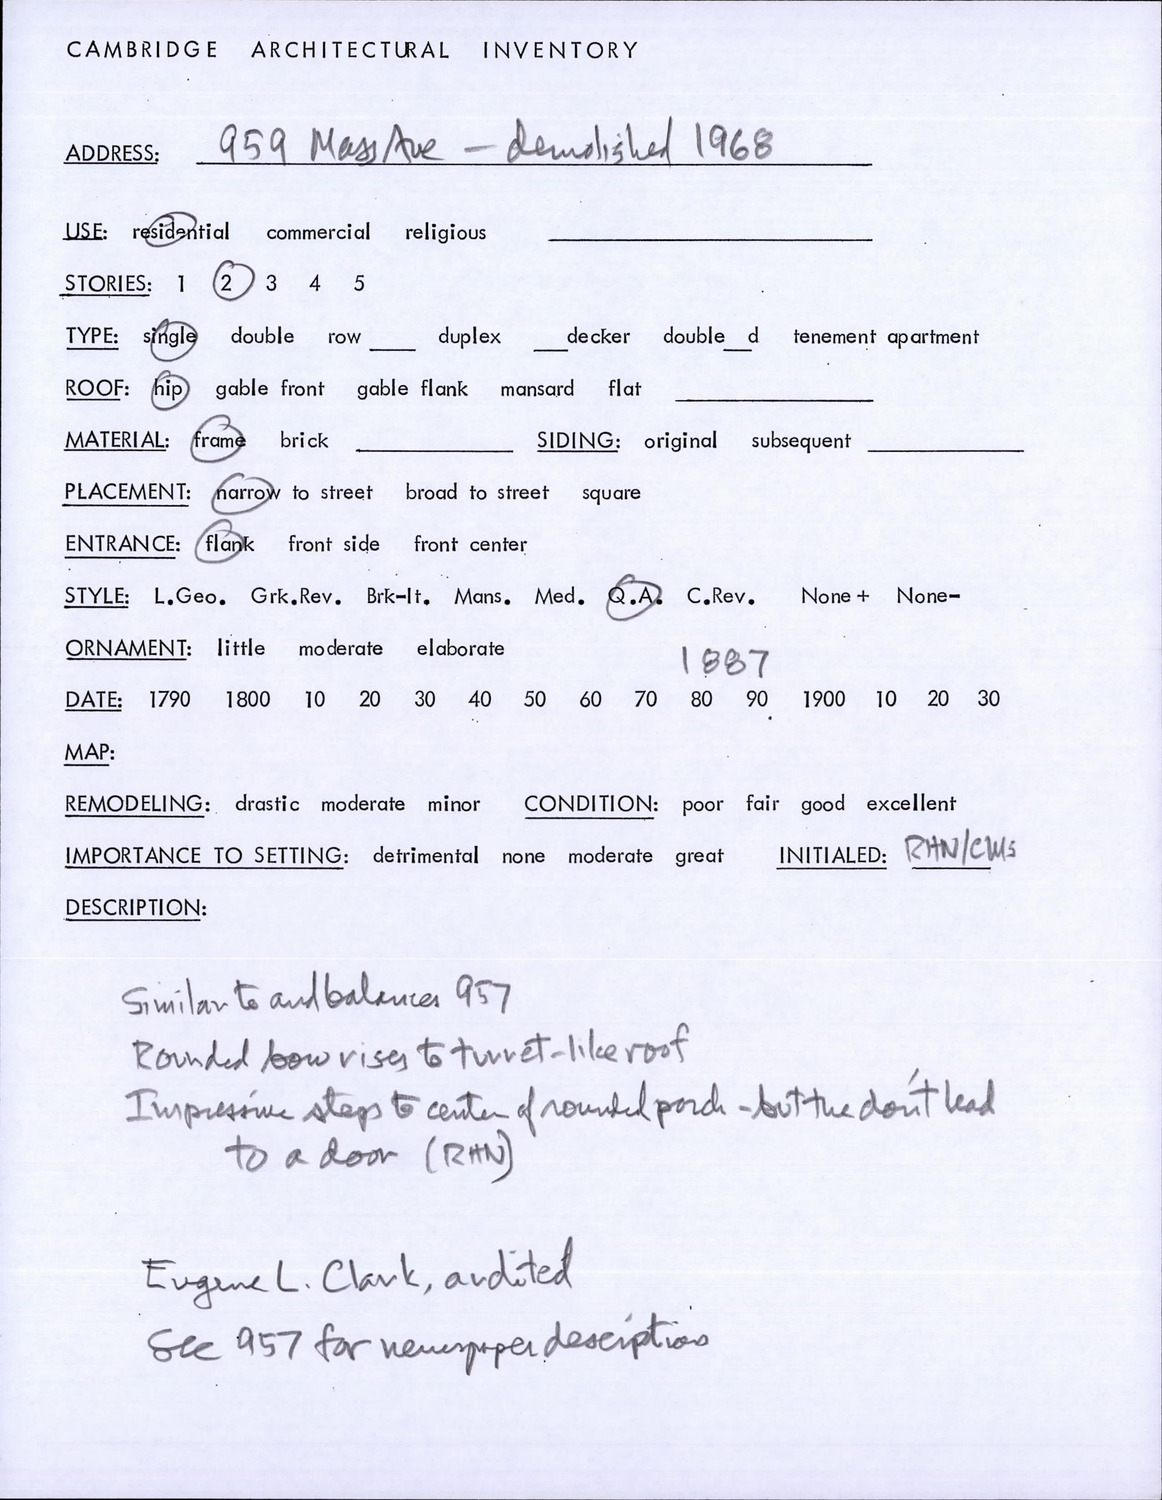 CAMBRIDGE ARCHITECTURAL INVENTORY
ADDRESS: 959 Mass Ave - demolished 1968
USE: residential commercial religious
STORIES: 1 2 3 4 5
TYPE: single double row ____ duplex ____decker double__d tenement apartment
ROOF: hip gable front gable flank mansard flat
MATERIAL: frame brick ____ SIDING: original subsequent ____
PLACEMENT: narrow to street broad to street square
ENTRANCE: flank front side front center
STYLE: L.Geo. Grk.Rev. Brk-It. Mans. Med. Q.A. C.Rev. None+ None-
ORNAMENT: little moderate elaborate
1887
DATE: 1790 1800 10 20 30 40 50 60 70 80 90 1900 10 20 30
MAP:
REMODELING: drastic moderate minor CONDITION: poor fair good excellent
IMPORTANCE TO SETTING: detrimental none moderate great INITIALED: RHN/CMS
DESCRIPTION:
Similar to and balances 957
Rounded bow rises to turret-like roof
Impressive steps to center of rounded porch - but the don't lead
to a door (RHN)
Eugene L. Clark, audited
See 957 for newspaper description